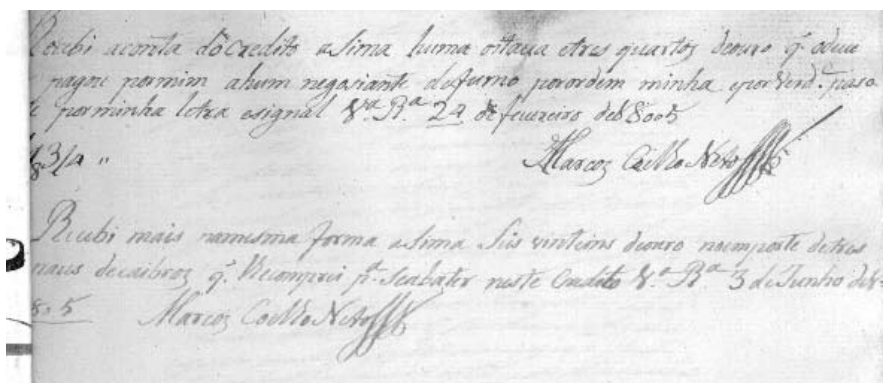 Recebi aconta do Credito asima huma oitava etres quartos deouro q. odeve
pagou pormim ahum negosiante defumo porordem minha eporverd.e paso
porminha letra esignal V.a R.a 24 de fevereiro de18005
3/4 "
Marcos Coelho Neto
Recebi mais namesma forma asima seis vinteins deouro noimporte detres
paus decaibros q. lhe comprei p.a seabater neste Credito V.a R.a 3 deJunho de1
805 Marcos Coelho Neto